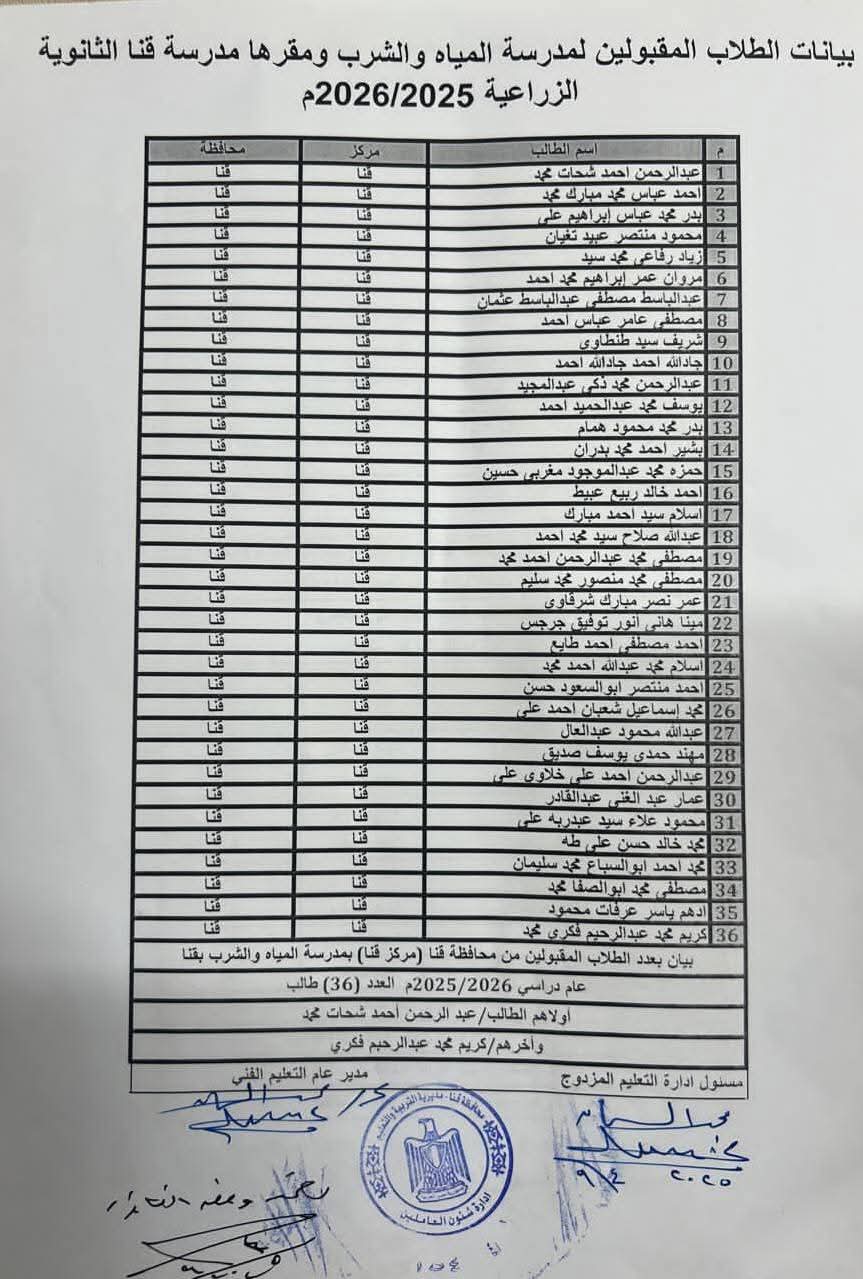 بيانات الطلاب المقبولين لمدرسة المياه والشرب ومقرها مدرسة قنا الثانوية
الزراعية 2026/2025م
م اسم الطالب مركز محافظة
1 عبدالرحمن احمد شحات محمد قنا قنا
2 احمد عباس محمد مبارك محمد قنا قنا
3 بدر محمد عباس إبراهيم على قنا قنا
4 محمود منتصر عبيد تغيان قنا قنا
5 زياد رفاعى محمد سيد قنا قنا
6 مروان عمر إبراهيم محمد احمد قنا قنا
7 عبدالباسط مصطفى عبدالباسط عثمان قنا قنا
8 مصطفى عامر عباس احمد قنا قنا
9 شريف سيد طنطاوى قنا قنا
10 جادالله احمد جادالله احمد قنا قنا
11 عبدالرحمن محمد ذكى عبدالمجيد قنا قنا
12 يوسف محمد عبدالحميد احمد قنا قنا
13 بدر محمد محمود همام قنا قنا
14 بشير احمد محمد بدران قنا قنا
15 حمزه محمد عبدالموجود مغربى حسين قنا قنا
16 احمد خالد ربيع عبيط قنا قنا
17 اسلام سيد احمد مبارك قنا قنا
18 عبدالله صلاح سيد محمد احمد قنا قنا
19 مصطفى محمد عبدالرحمن احمد محمد قنا قنا
20 مصطفى محمد منصور محمد سليم قنا قنا
21 عمر نصر مبارك شرقاوى قنا قنا
22 مينا هانى أنور توفيق جرجس قنا قنا
23 احمد مصطفى احمد طايع قنا قنا
24 اسلام محمد عبدالله احمد محمد قنا قنا
25 احمد منتصر ابوالسعود حسن قنا قنا
26 محمد إسماعيل شعبان احمد على قنا قنا
27 عبدالله محمود عبدالعال قنا قنا
28 مهند حمدى يوسف صديق قنا قنا
29 عبدالرحمن احمد على خلاوى على قنا قنا
30 عمار عبد الغنى عبدالقادر قنا قنا
31 محمود علاء سيد عبدربه على قنا قنا
32 محمد خالد حسن على طه قنا قنا
33 محمد احمد ابوالسباع محمد سليمان قنا قنا
34 مصطفى محمد ابوالصفا محمد قنا قنا
35 ادهم ياسر عرفات محمود قنا قنا
36 كريم محمد عبدالرحيم فكري محمد قنا قنا
بيان بعدد الطلاب المقبولين من محافظة قنا (مركز قنا) بمدرسة المياه والشرب بقنا
عام دراسي 2025/2026م العدد (36) طالب
أولاهم الطالب/عبد الرحمن أحمد شحات محمد
وأخرهم/كريم محمد عبدالرحيم فكري
مسئول ادارة التعليم المزدوج مدير عام التعليم الفني
محافظة قنا - مديرية التربية والتعليم
ادارة شئون العاملين
٢٠٢٥